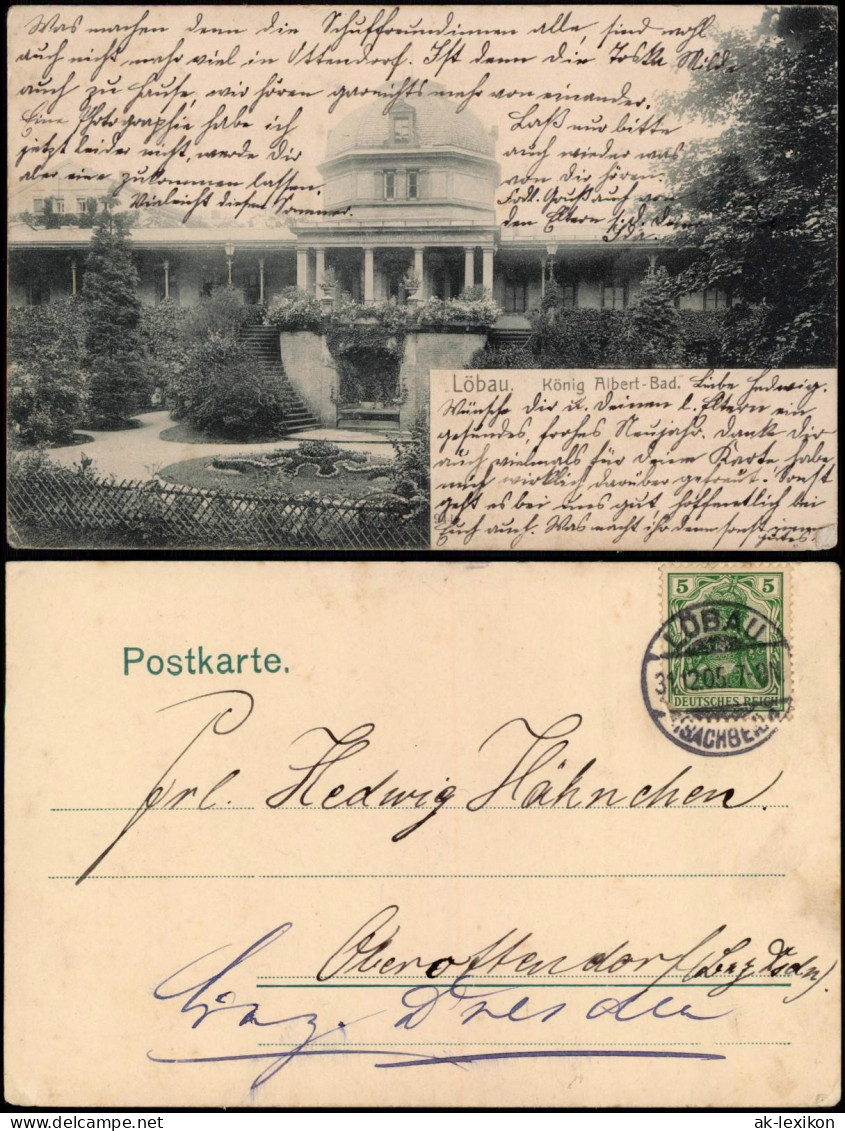 Was machen denn die Schulfreundinnen alle, sind wohl
auch nicht mehr viel in Ottendorf. Ist denn die Toska
auch zu Hause, wir hören garnichts mehr von einander.
Eine Photographie habe ich
jetzt leider nicht, werde Dir
aber eine zukommen lassen.
Vielleicht diesen Sommer.
Laß nur bitte
auch wieder was
von Dir hören.
Gruß auch von
den Eltern
Löbau. König Albert-Bad. Liebe Hedwig.
Wünsche Dir u. Deinen l. Eltern ein
gesundes, frohes Neujahr. Danke Dir
auch vielmals für Deine Karte, habe
mich wirklich darüber gefreut. Sonst
geht es bei uns gut, hoffentlich bei
Euch auch. Was macht ihr denn sonst
gutes.
Postkarte.
5 5
DEUTSCHES REICH
LÖBAU
31.12.05. 7-8N
(SACHSEN)
Frl. Hedwig Hähnchen.
Oberottendorf (Bez. Dsdn).
Bez. Dresden
ak-lexikon